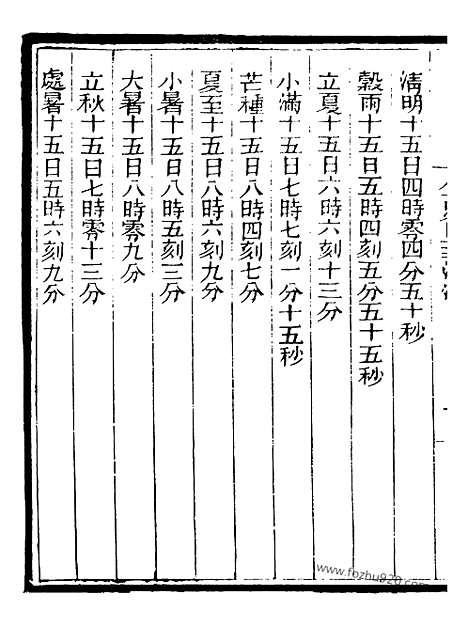 清明十五日四時零四分五十秒
穀雨十五日五時四刻五分五十五秒
立夏十五日六時六刻十三分
小滿十五日七時七刻一分十五秒
芒種十五日八時四刻七分
夏至十五日八時六刻九分
小暑十五日八時五刻三分
大暑十五日八時零九分
立秋十五日七時零十三分
處暑十五日五時六刻九分
www.fozhu920.com